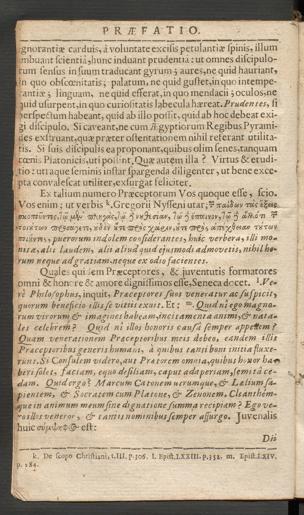 PRÆFATIO.
ignorantiæ carduis, à voluntate excisis petulantiæ spinis, illum
imbuant scientiâ, hunc induant prudentia: ut omnes discipulo-
rum sensus in suum traducant gyrum; aures, ne quid hauriant,
in quo obscœnitatis; palatum, ne quid gustet, in quo intempe-
rantiæ; linguam, ne quid efferat, in quo mendacii; oculos, ne
quid usurpent, in quo curiositatis labecula hæreat. Prudentes, si
perspectum habeant, quid ab illo possit, quid ab hoc debeat exi-
gi discipulo. Si caveant, ne cum Ægyptiorum Regibus Pyrami-
des exstruant, quæ præter ostentationem nihil referant utilita-
tis. Si suis discipulis ea proponant, quibus olim senes, tanquam
cœnis Platonicis, uti possint. Quæ autem illa? Virtus & erudi-
tio: utraque seminis instar spargenda diligenter, ut bene exce-
pta convalescat utiliter, exsurgat feliciter.
Ex talium numero Præceptorum Vos quoque esse, scio.
Vos enim; ut verbis k. Gregorii Nysseni utar;
puerorum indolem considerantes, hunc verbera, illi mo-
nitæ, alii laudem, alii aliud quid ejusmodi admovetis, nihil ho-
rum neque ad gratiam, neque ex odio facientes.
Quales quidem Præceptores, & juventutis formatores
omni & honore & amore dignissimos esse, Seneca docet. l. Ve-
rè Philosophus, inquit, Præceptores suos veneratur ac suspicit,
quorum beneficio illis se vitiis exuit. Et: m. Quid ni ego magno-
rum virorum & imagines habeam, incitamenta animi, & nata-
les celebrem? Quid ni illos honoris causâ semper appellem?
Quam venerationem Præceptoribus meis debeo, eandem illis
Præceptoribus generis humani, à quibus tanti boni initia fluxe-
runt. Si Consulem videro, aut Prætorem omnia, quibus honor ha-
beri solet, faciam, equo desiliam, caput adaperiam, semitâ ce-
dam. Quid ergo? Marcum Catonem utrumque, & Lælium sa-
pientem, & Socratem cum Platone, & Zenonem, Cleanthem-
que in animum meum sine dignatione summa recipiam? Ego ve-
rò illos veneror, & tantis nominibus semper assurgo. Juvenalis
huic est:
Dii
k. De scopo Christiani, t.III. p.306. l. Epist. LXXIII. p.352. m. Epist. LXIV.
p. 284.